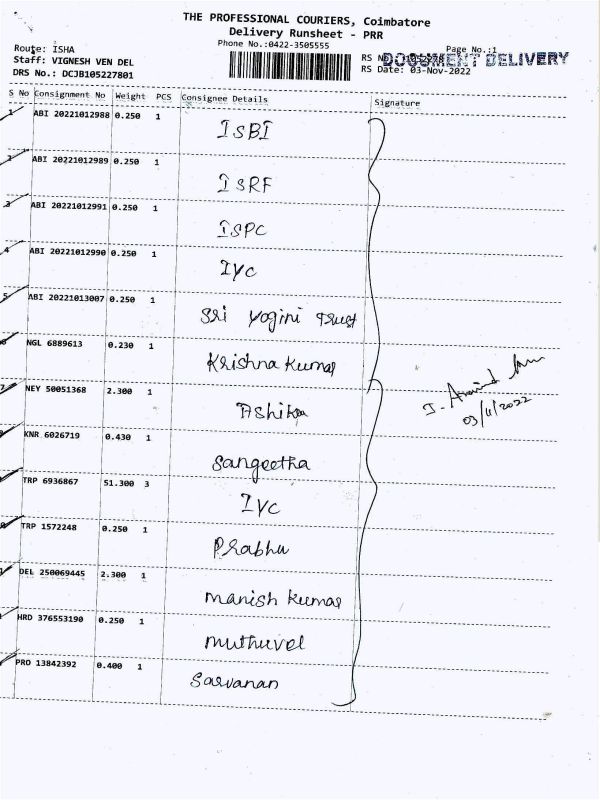 THE PROFESSIONAL COURIERS, Coimbatore
Delivery Runsheet - PRR
Phone No.:0422-3505555
Page No.:1
Route: ISHA
Staff: VIGNESH VEN DEL
RS No
DOCUMENT DELIVERY
DRS No.: DCJB105227801
RS Date: 03-Nov-2022
S No Consignment No Weight PCS Consignee Details Signature
1 ABI 20221012988 0.250 1 ISBI
2 ABI 20221012989 0.250 1 ISRF
3 ABI 20221012991 0.250 1 ISPC
4 ABI 20221012990 0.250 1 IYC
5 ABI 20221013007 0.250 1 Sri Yogini Trust
NGL 6889613 0.230 1 Krishna Kumar
NEY 50051368 2.300 1 Ashika
03/11/2022
KNR 6026719 0.430 1 Sangeetha
TRP 6936867 51.300 3 IYC
TRP 1572248 0.250 1 Prabhu
DEL 250069445 2.300 1 Manish Kumar
HRD 376553190 0.250 1 Muthuvel
PRO 13842392 0.400 1 Sarvanan